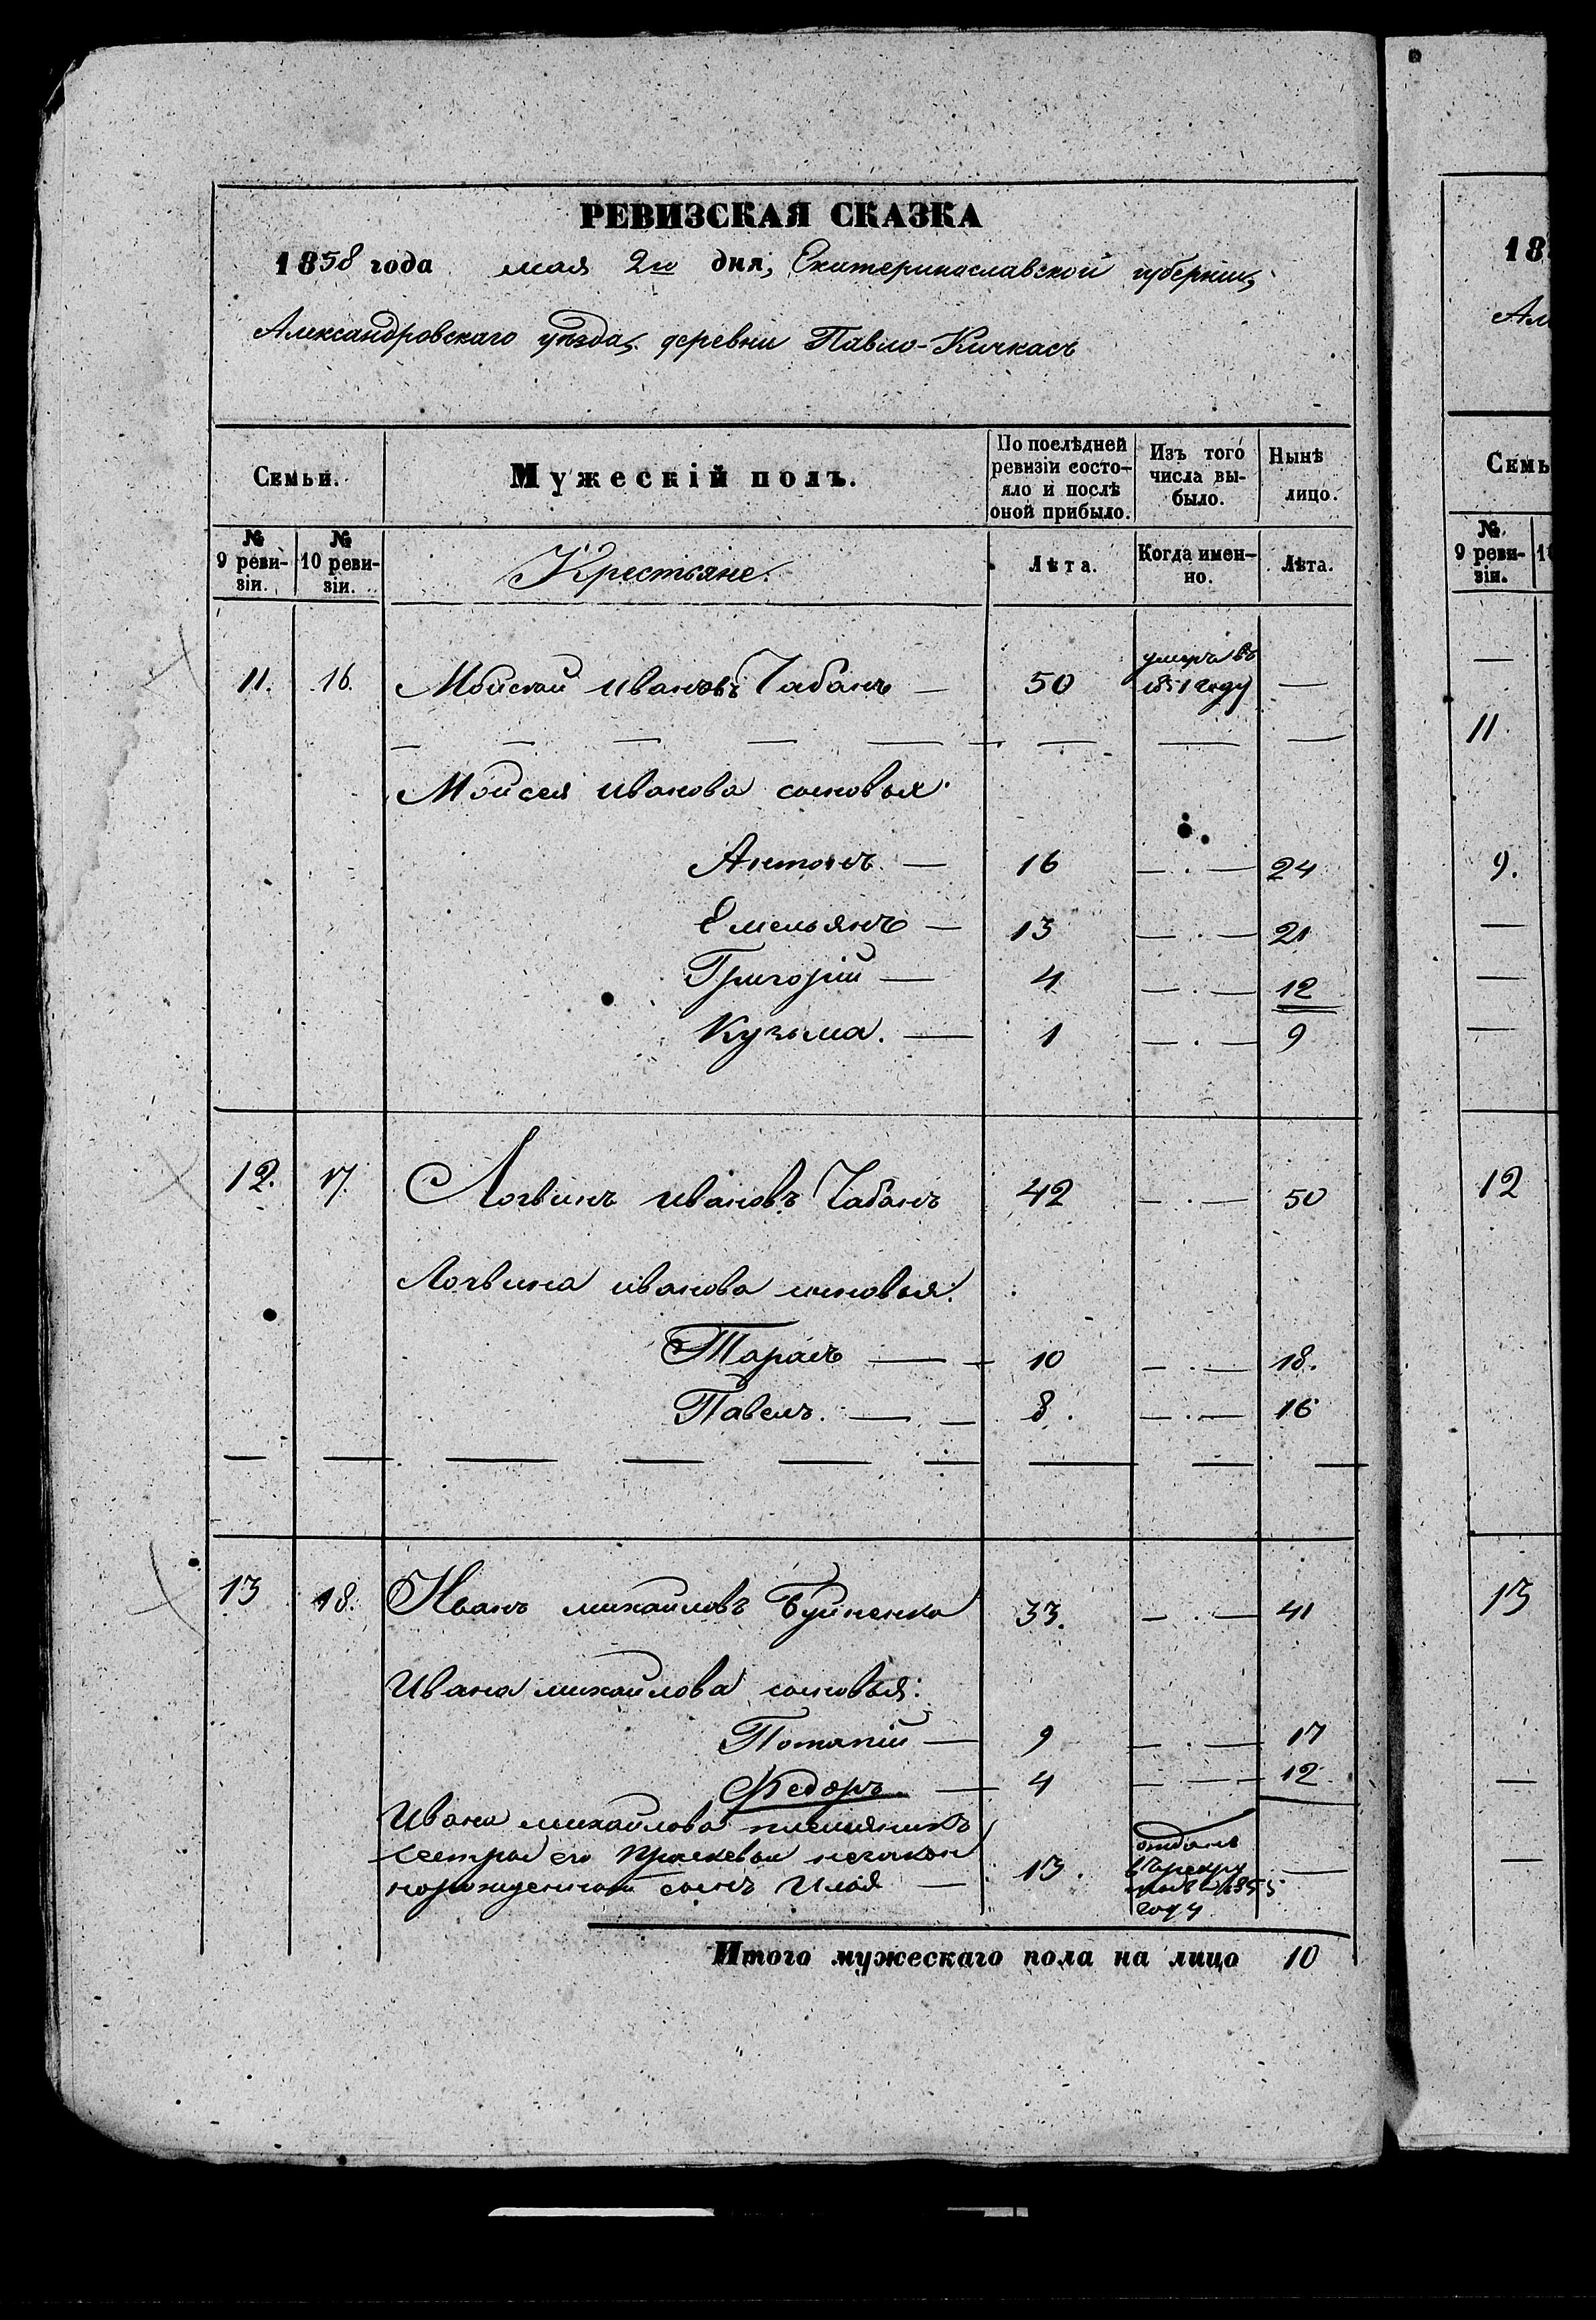 РЕВИЗСКАЯ СКАЗКА
1858 года мая 2го дня, Екатеринославской губернии,
Александровскаго уѣзда, деревни Павло-Кичкасъ
Семьи. Мужескій полъ. По послѣдней ревизіи состояло и послѣ оной прибыло. Изъ того числа выбыло. Нынѣ лицо.
№ 9 ревизіи. № 10 ревизіи. Крестьяне. Лѣта. Когда именно. Лѣта.
11. 16. Мойсей Ивановъ Чабанъ — 50 умеръ въ 1851 году —
Мойсея Иванова сыновья:
Антонъ — 16 — . — 24
Емельянъ — 13 — . — 21
Григорій — 4 — . — 12
Кузьма. — 1 — . — 9
12. 17. Логвинъ Ивановъ Чабанъ 42 — . — 50
Логвина Иванова сыновья:
Тарасъ — 10 — . — 18.
Павелъ. — 8. — . — 16
13 18. Иванъ Михайловъ 33. — . — 41
Ивана Михайлова сыновья:
Потапій — 9 — . — 17
Федоръ — 4 — . — 12
Ивана Михайлова племянникъ
сестры его Прасковьи незакон
норожденный сынъ Илья — 13. отданъ въ рекруты въ 1855 году —
Итого мужескаго пола на лицо 10
18
Ал
Семь
№ 9 ревизіи. 10
11
9.
12
13